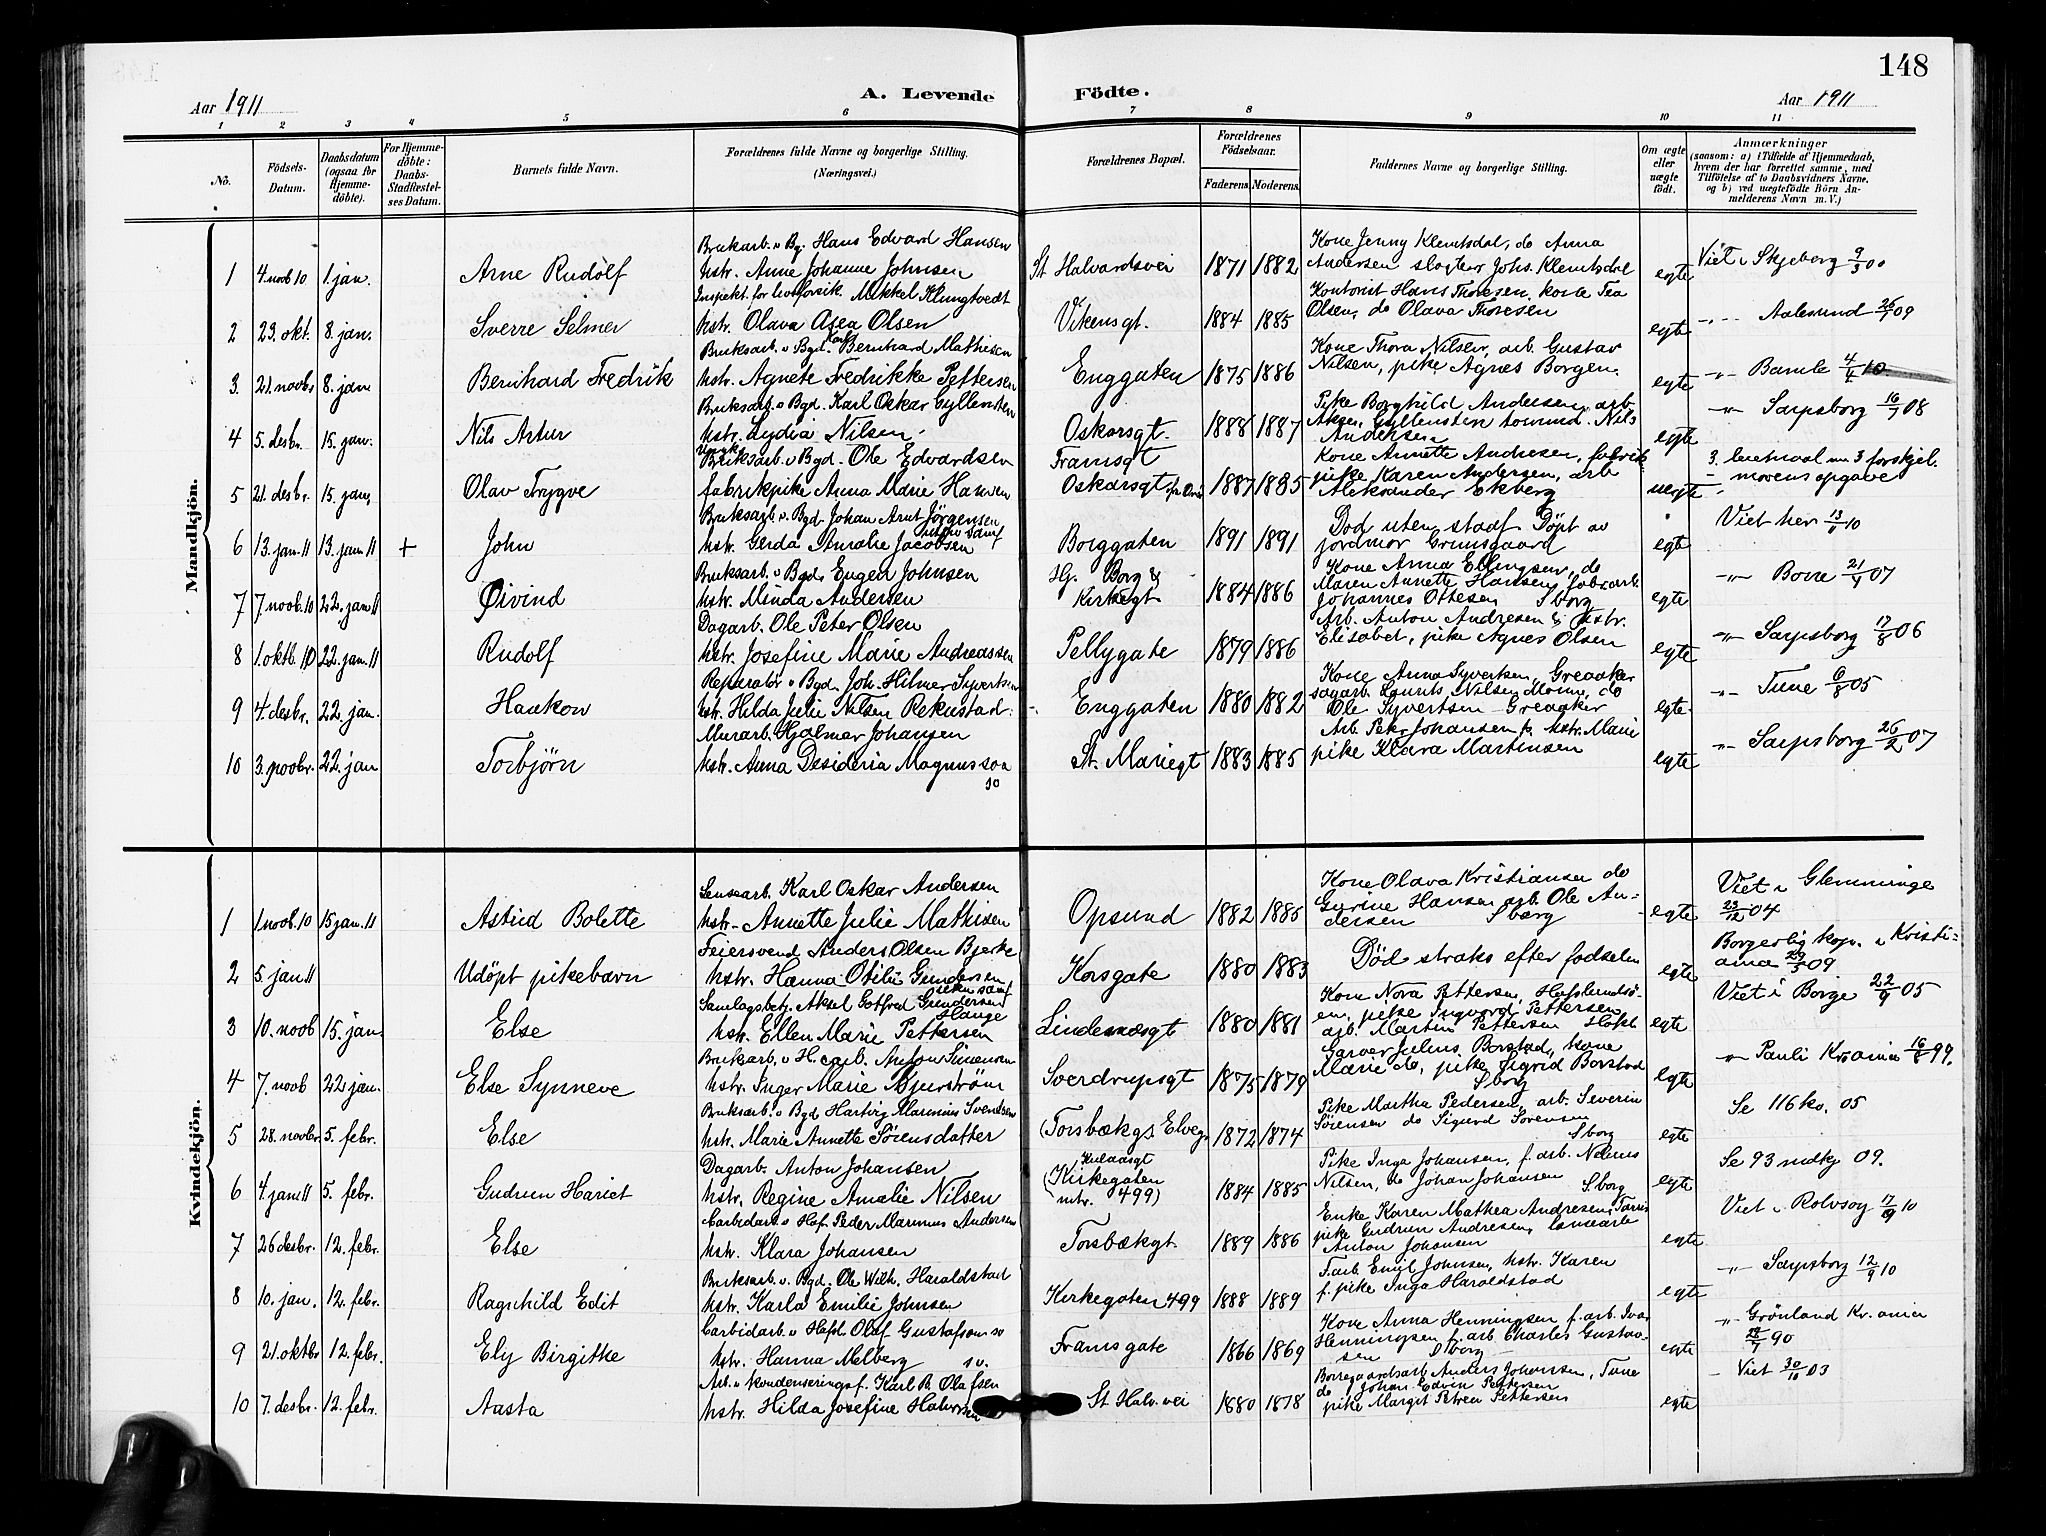 148
Aar 1911 A. Levende Födte. Aar 1911
1 2 3 4 5 6 7 8 9 10 11
No. Födsels-Datum. Daabsdatum (ogsaa for Hjemme-döbte). For Hjemme-döbte: Daabs-Stadfæstel-ses Datum. Barnets fulde Navn. Forældrenes fulde Navne og borgerlige Stilling. (Næringsvei.) Forældrenes Bopæl. Forældrenes Födselsaar. Faderens. Moderens. Faddernes Navne og borgerlige Stilling. Om ægte eller uægte födt. Anmærkninger (saasom: a) i Tilfælde af Hjemmedaab, hvem der har forrettet samme, med Tilföielse af to Daabsvidners Navne, og b) ved uægtefödte Börn An-melderens Navn m. V.)
Mandkjön.
Bruksarb. v Bg. Hans Edvard Hansen Kone Jenny Klemtsdal, do Anna
1 4. novb 10 1. jan. Arne Rudolf hstr. Anne Johanne Johnsen St. Halvardsvei 1871 1882 Andersen slagter Johs. Klemtsdal egte Viet i Skjeberg 9/3 00
Inspekt. for livsforsik. Mikkel Klungtvedt Kontorist Hans Thoresen, kone Tea
2 23. okt. 8. jan. Sverre Selmer hstr. Olava Asea Olsen Vikensgt. 1884 1885 Olsen, do Olava Thoresen egte -"- Aalesund 26/1 09
Bruksarb. v Bgd. Karl Bernhard Mathisen Kone Thora Nilsen, arb. Gustav
3. 21. novbr 8. jan Bernhard Fredrik hstr. Agnete Fredrikke Pettersen Enggaten 1875 1886 Nilsen, pike Agnes Borgen. egte -"- Bamle 4/4 10.
Bruksarb. v Bgd. Karl Oskar Gyllensten Pike Borghild Andersen, arb
4 5. desbr. 15. jan. Nils Artur hstr. Lydia Nilsen Oskarsgt. 1888 1887 Aksel Gyllensten Nils Andersen egte -"- Sarpsborg 16/1 08
Ungk. Bruksarb. v Bgd. Ole Edvardsen Framsgt Kone Annette Andresen, fabrik
5 21. desbr. 15. jan. Olav Trygve fabrikpike Anna Marie Hansen Oskarsgt 1887 1885 pike Karen Andersen, arb Aleksander Ekberg uegte 3. leiermaal m 3 forskjel. morens opgave
Bruksarb. v. Bgd. Johan Arnt Jörgensen
6 13. jan. 11 13. jan 11 + John hstr. Gerda Amalie Jacobsen Borggaten 1891 1891 Död uten stadf. Döpt av jordmor Grimsgaard egte Viet her 13/11 10
Bruksarb. v Bgd. Eugen Johnsen Hj. Borg & Kone Anna Ellingsen, do
7 7 novb. 10 22. jan 11 Øivind hstr. Minda Andersen Kirkegt 1884 1886 Maren Annette Hansen, fabr.arb. Johannes Ottesen Sborg egte -"- Borre 21/4 07
Dagarb. Ole Peter Olsen Arb. Anton Andresen & hstr.
8 1. oktb. 10 22. jan. 11 Rudolf hstr. Josefine Marie Andreassen Pellygate 1879 1886 Elisabet, pike Agnes Olsen egte -"- Sarpsborg 17/8 06
Reparatör v Bgd. Joh. Hilmer Syvertsen Kone Anna Syvertsen, Greaaker
9 4. desbr. 22. jan. Haakon hstr. Hilda Julie Nilsen Rekustad Enggaten 1880 1882 sagarb. Laurits Nilsen Moum, do Ole Syvertsen Greaaker egte -"- Tune 6/8 05
Murarb. Hjalmar Johansen Arb. Petr Johansen & hstr. Marie
10 3. novbr. 22. jan Torbjørn hstr. Anna Desideria Magnusson St. Mariegt 1883 1885 pike Klara Martinsen egte -"- Sarpsborg 26/2 07
Kvindekjön.
Lensearb. Karl Oskar Andersen Kone Olava Kristiansen do
1 1 novb. 10 15 jan. 11 Astrid Bolette hstr. Annette Julie Mathisen Opsund 1882 1885 Gurine Hansen arb. Ole Andersen Sborg egte Viet i Glemminge 23/12 04
Feiersvend Anders Olsen Bjerke
2 5. jan 11 Udöpt pikebarn hstr. Hanna Otilie Gundersen Korsgate 1880 1883 Död straks efter födselen egte Borgerlig kop. i Kristiania 29/5 09
Samlagsbetj. Aksel Gotfred Gundersen Hauge Kone Nora Pettersen, Hafslundsö-
3 10. novb 15. jan. Else hstr. Ellen Marie Pettersen Lindemansgt 1880 1881 en, pike Ingvord Pettersen, arb. Martin Pettersen egte Viet i Borge 22/9 05
Bruksarb. v. H. Anton Simensen Garver Julius Borstad, kone
4 7. novb 22 jan. Else Synneve hstr. Inger Marie Bjurström Sverdrupsgt 1875 1879 Marie do, pike Sigrid Borstad Sborg egte -"- Pauli Kr.ania 16/8 99.
Bruksarb. v Bgd Hartvig Marinius Svendsen Pike Martha Pedersen, arb. Severin
5 28. novbr. 5. febr. Else hstr. Marie Annette Sörensdatter (Torsbækg. Elveg. 1872 1874 Sörensen do Sigurd Sörensen Sborg egte Se 116 ko. 05
Dagarb. Anton Johansen Pike Inga Johansen, f. arb. Nils
6 4. jan 11 5. febr. Gudrun Hariet hstr. Regine Amalie Nilsen (Kirkegaten mtr. 499) 1884 1885 Nilsen, do Johan Johansen Sborg egte Se 93 mdkj 09.
Carbidarb. v Haf. Peder Marinus Andersen Enke Karen Mathea Andresen, Tune
7 26 desbr. 12. febr. Else hstr. Klara Johansen Torsbækgt. 1889 1886 pike Gudrun Andresen, lensearb Anton Johansen egte Viet i Rolvsøy 17/9 10
Bruksarb. v. Bgd. Ole Wilh. Haraldstad F.arb Emil Johnsen, hstr. Karen
8 10. jan. 12. febr. Ragnhild Edit hstr. Karla Emilie Johnsen Kirkegaten 499 1888 1889 f. pike Inga Haraldstad egte -"- Sarpsborg 12/9 10
Carbidarb. v Hafsl. Olaf Gustafson sv Kone Anna Henningsen f. arb. Ivar
9 21. oktbr 12. febr. Ely Birgithe hstr. Hanna Melberg sv. Framsgate 1866 1869 Henningsen f. arb Charles Gustavsen Sborg egte -"- Grönland Kr.ania 28/7 90
Arb. v Kondenseringsf. Karl B. Olafsen Borregaardsarb Anders Johansen, Tune
10 7. desbr. 12. febr. Aasta hstr. Hilda Josefine Halvorsen St Halv. vei 1880 1878 do Johan Edvin Pettersen pike Margit Petrea Pettersen egte - Viet 30/10 03